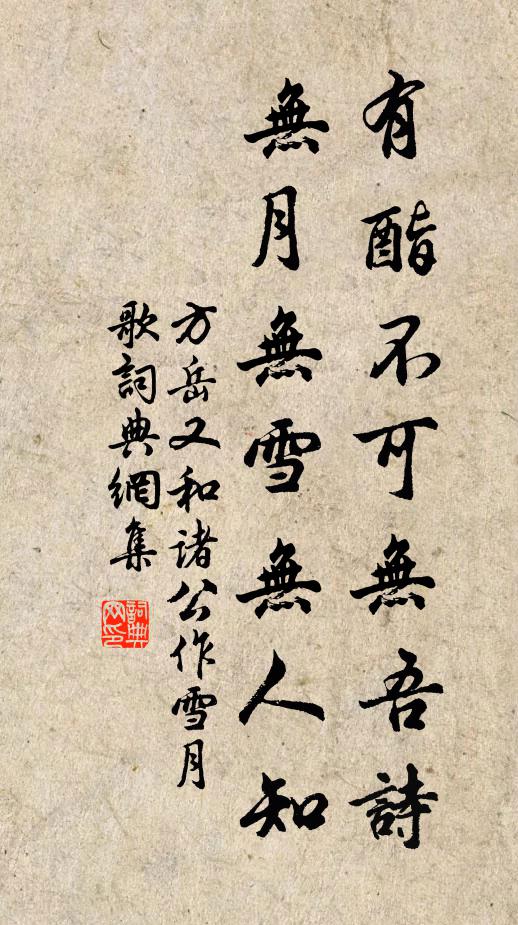 有酯不可無吾詩
無月無雪無人知
方岳又和諸公作雪月
歌詞典網集
詞典網印